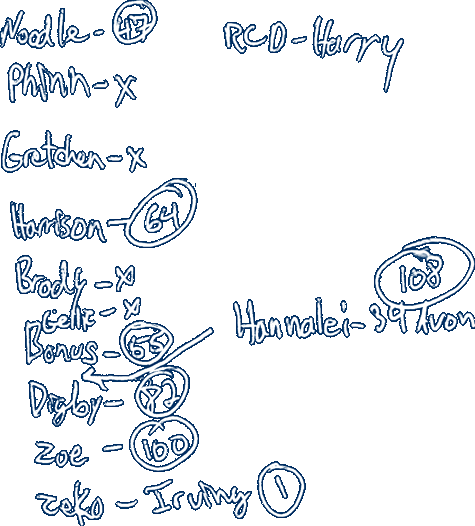 Noodle - 47
RCD - Harry
Phinn - x
Gretchen - x
Harrison - 64
Brody - x
108
Gellie - x
Hannalei - 39 Avon
Bonus - 55
Digby - 82
Zoe - 100
Zeko - Irving 1